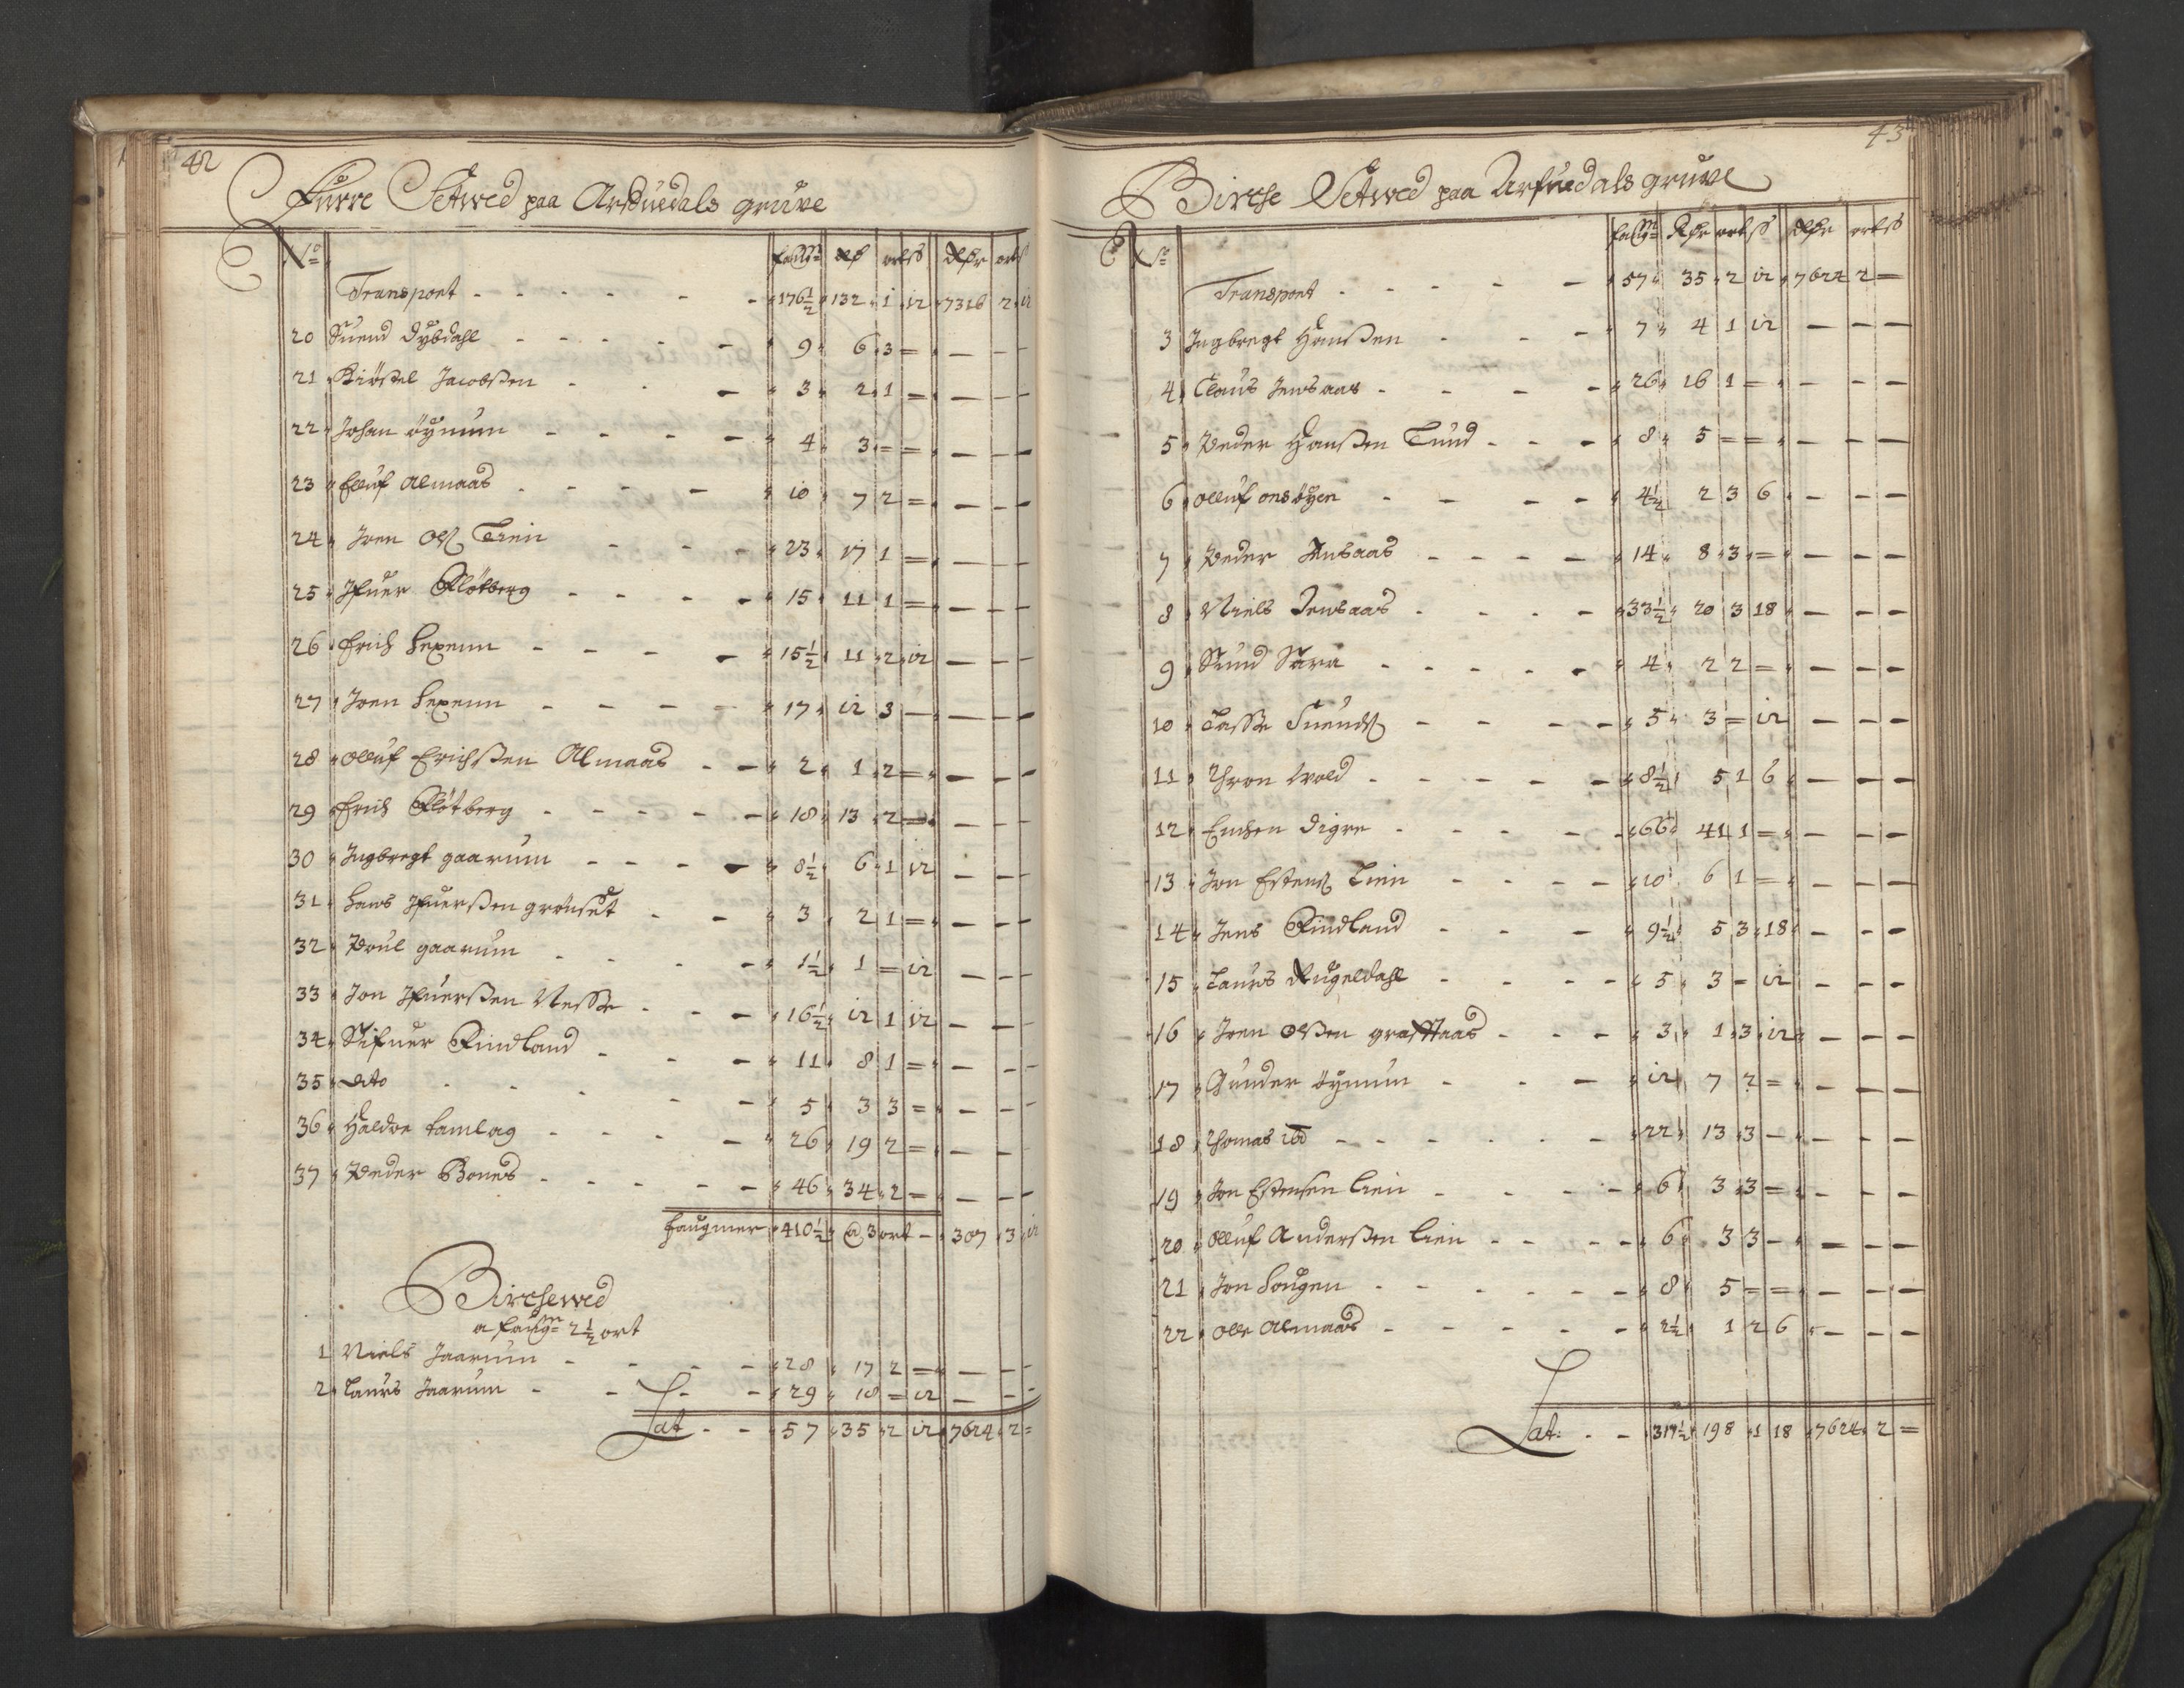 42
Furre Setwed paa Arfuedals gruve
No faugn dlr ort ß dlr ort ß
Transport - - - - - - 176½ 132 1 12 7316 2 12
20 Suend dybdahl - - - - - 9 6 3 = — — —
21 Kiöstel Jacobßen - - - 3 2 1 = — — —
22 Johan öÿnum - - - - 4 3 = = — — —
23 Elluf Almaas - - - - 10 7 2 = — — —
24 Joen Olß Lien - - - 23 17 1 = — — —
25 Jfuer Flötberg - - - - 15 11 1 = — — —
26 Erich hexenn - - - - 15½ 11 2 12 — — —
27 Joen hexenn - - - - 17 12 3 — — — —
28 Olluf Erichßen Almaas - - 2 1 2 = — — —
29 Erich Flötberg - - - - - 18 13 2 = — — —
30 Ingbregt gaarum - - - - 8½ 6 1 12 — — —
31 hans Jfuerßen grönset - - 3 2 1 = — — —
32 Poul gaarum - - - - 1½ 1 = 12 — — —
33 Jon Jfuerßen Nesse - - - 16½ 12 1 12 — — —
34 Sifuer Rindland - - - 11 8 1 = — — —
35 dito - - - - - 5 3 3 = — — —
36 Haldoe Lamlag - - - - 26 19 2 = — — —
37 Peder Bones - - - - - 46 34 2 = — — —
faugner 410½ @ 3 ort - 307 3 12
Birchewed
a faugn 2½ ort
1 Niels Jaarum - - - - 28 17 2 = — — —
2 Laurs Jaarum - - - - 29 18 = 12 — — —
Lat - - 57 35 2 12 7624 2 =
43
Birche Setwed paa Arfuedals gruve
No faugn Rdr ort ß dlr ort ß
Transport - - - - - 57 35 2 12 7624 2 =
3 Ingbregt Hanßen - - - 7 4 1 12 — — —
4 Claus Jensaas - - - - 26 16 1 = — — —
5 Peder Hanßen Lund - - - 8 5 = = — — —
6 Olluf onsöÿen - - - - 4½ 2 3 6 — — —
7 Peder Ansaas - - - - 14 8 3 = — — —
8 Niels Jensaas - - - - 33½ 20 3 18 — — —
9 Suend Væra - - - - - 4 2 2 = — — —
10 Lasse Suendß - - - - 5 3 = 12 — — —
11 Thron Wold - - - - - 8½ 5 1 6 — — —
12 Enchen digre - - - - - 66 41 1 = — — —
13 Jon Estenß Lien - - - - 10 6 1 = — — —
14 Jens Rindland - - - 9½ 5 3 18 — — —
15 Laurs Rugeldahl - - - - 5 3 = 12 — — —
16 Joen Olßen graftaas - - - 3 1 3 12 — — —
17 Gunder öÿnum - - - 12 7 2 = — — —
18 Thomas ibd - - - - - - 22 13 3 — — — —
19 Jon Estensen Lien - - - - 6 3 3 = — — —
20 Olluf Anderßen Lien - - - - 6 3 3 — — — —
21 Jon Hougen - - - - - - 8 5 = = — — —
22 Olle Almaas - - - - - 2½ 1 2 6 — — —
Lat: - - 317½ 198 1 18 7624 2 =